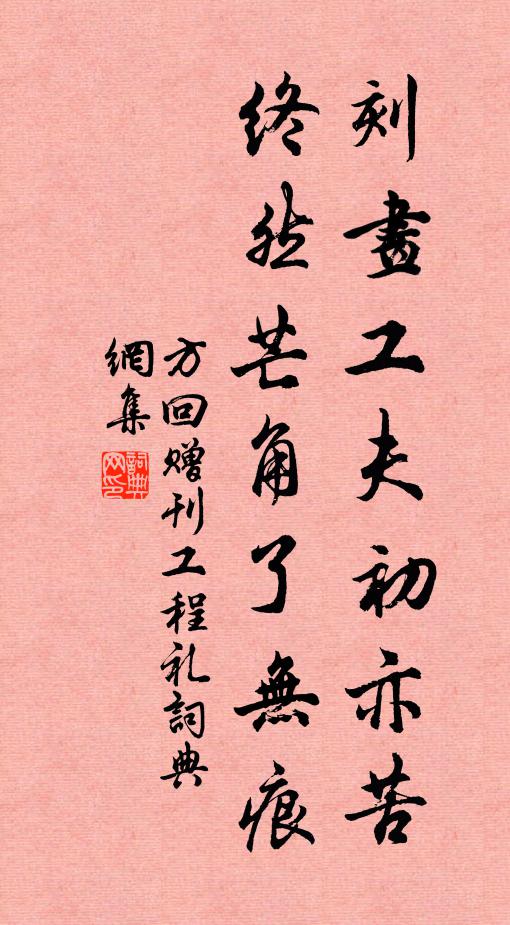 刻畫工夫初亦苦
終然芒角了無痕
方回赠刊工程礼詞典
網集
詞典網印